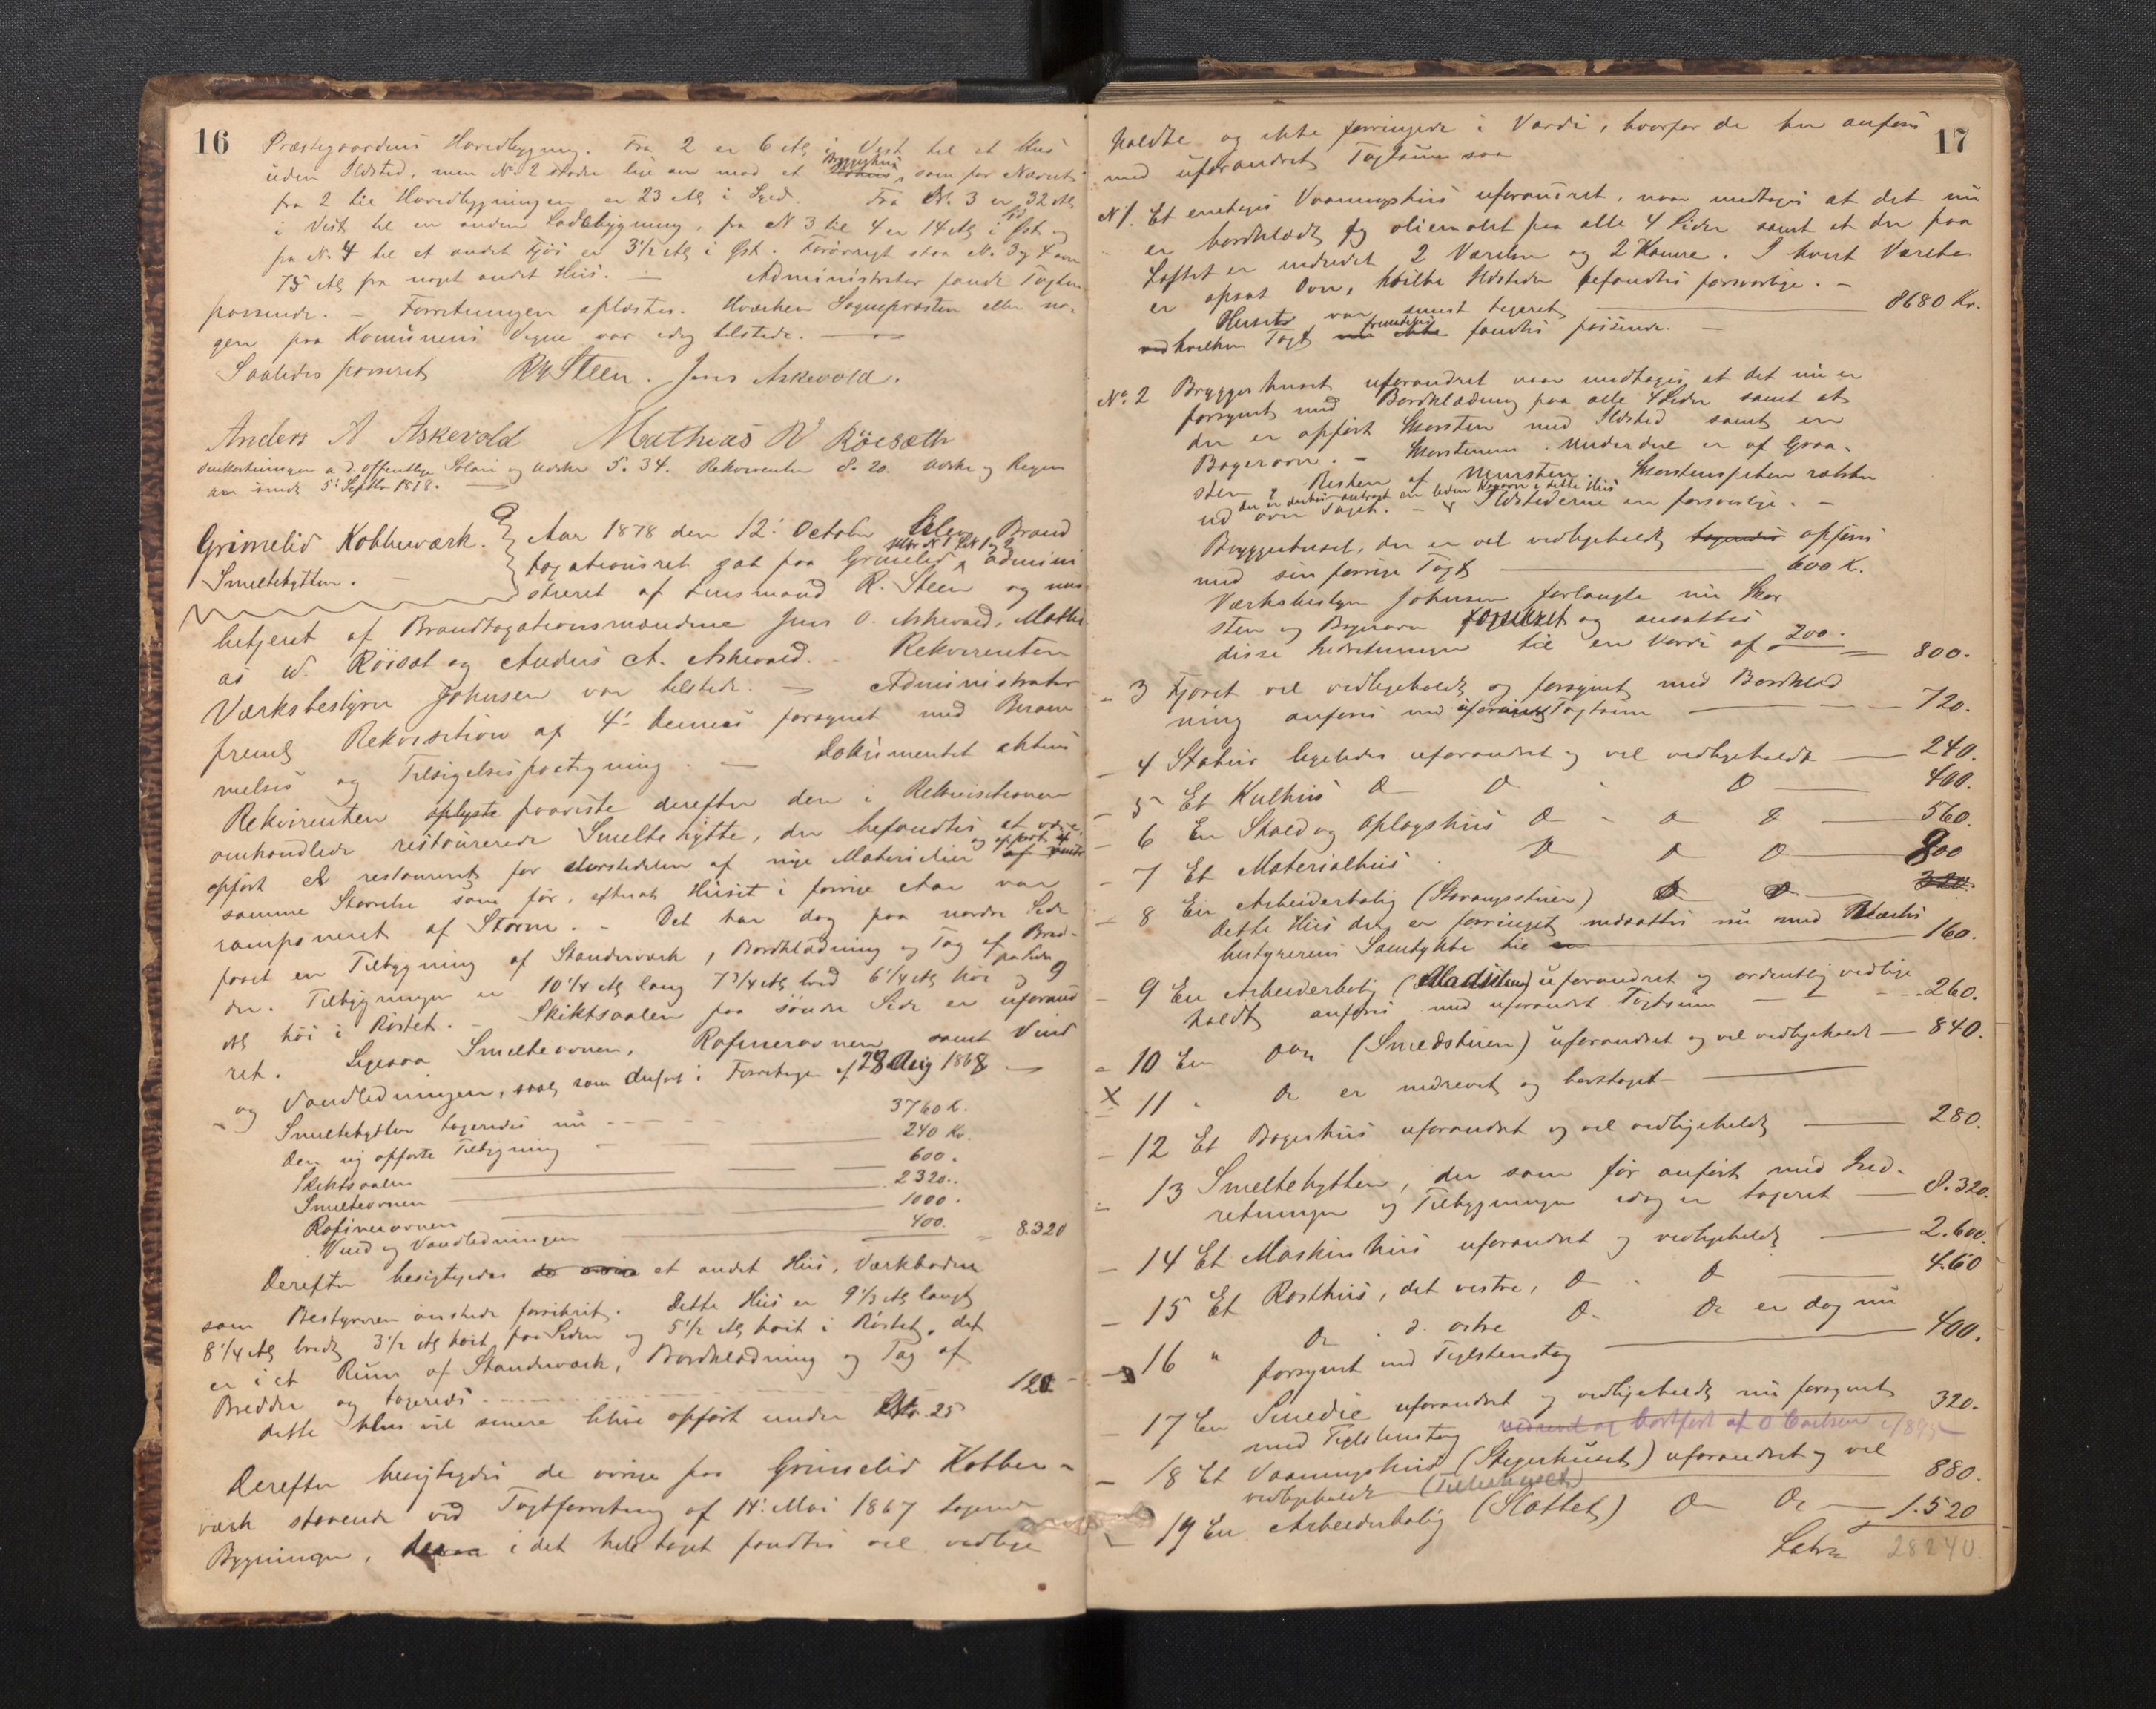 16
Præstegaardens Hovedbygning. Fra 2 er 6 Al. i Vest til et Hus
uden Ildsted, men No 2 støder lige mod et Bryggehus, som for Nærværende
fra 2 til Hovedbygningen er 23 Al. i Syd. Fra No. 3 er 32 Al.
i Vest til en anden Ladebygning, fra N 3 til 4 er 14 Al. i Øst og
fra No. 4 til et andet Fjøs er 3 1/2 Al. i Øst. Forøvrigt staa No. 3 og 4 over
75 Al. fra noget andet Hus. — Administrator fandt Taxten
passende. — Forretningen oplæstes. Hverken Sognepræsten eller no-
gen paa Komunens Vegne var idag tilstede. —
Saaledes passeret
R Steen. Jens Askevold.
Anders A Askevold Mathias W Röisæth
Omkostninger a d. offentlige Solari og Udskr 5.34. Rekvirenten 8.20. Udskr og Regn
5 Septbr 1878.
Grimelid Kobberværk.
Smeltehytten.
Aar 1878 den 12' October blev Brand
taxationsret sat paa Grimelid admini
streret af Lensmand R. Steen og
betjent af Brandtaxationsmændene Jens O. Askevold, Mathi
as W. Röisæt og Anders A. Askevold. Rekvirenten
Værksbestyrer Johnsen var tilstede. — Administrator
fremlg Rekvisition af 4' dennes forsynet med Beram
melses og Tilsigelsespaategning. — Dokumentet
Rekvirenten paaviste derefter den i Rekvisitionen
omhandlede restaurerede Smeltehytte, der befandtes at være
opført og restaureret for størstedelen af nye Materialier og opført af
samme Størrelse som før, efterat Huset i forrige Aar var
ramponeret af Storm. — Det har dog paa nordre Side
faaet en Tilbygning af Standerværk, Bordklædning og Tag af Bræd-
der. Tilbygningen er 10 1/4 Al. lang 7 3/4 Al. bred 6 1/4 Al. høi paa Siden og 9
Al. høi i Røstet. — Skiktsaalen paa søndre Side er uforand
ret. Ligesaa Smelteovnen, Rafinerovnen samt Vind
og Vandledningen, som anført i Forretningen af 28 Aug 1868 —
Smeltehytten taxeredes nu - - - 3760 K.
Den ny opførte Tilbygning — 240 Kr.
Skiktsaalen — 600.
Smelteovnen — 2320..
Rafinerovnen — 1000.
Vind og Vandledningen — 400. = 8.320
Derefter besigtigedes et andet Hus, Værkboden
som Bestyreren ønskede forsikret. Dette Hus er 9 1/3 Al. langt
8 1/4 Al. bredt 3 1/2 Al. høit paa Siden og 5 1/2 Al. høit i Røstet, det
er i et Rum af Standerværk, Bordklædning og Tag af
Bredder og taxeredes - - - 120 -
Dette Hus vil senere blive opført under No. 25
Derefter besigtigedes de øvrige paa Grimelid Kobber-
værk staaende ved Taxtforretning af 14' Mai 1867 taxerede
Bygninger, i det hele taget fandtes vel vedlige
17
holdte og ikke forringede i Værdi, hvorfor de her anføres
med uforandret Taxtsum som
N 1. Et eneetages Vaaningshus uforandret, naar undtages at det nu
er bordklædt og oliemalet paa alle 4 Sider samt at der paa
Loftet er indredet 2 Værelser og 2 Kamre. I hvert Værelse
er opsat Ovn, hvilke Ildsteder befandtes forsvarlige. —
Huset var senest taxeret — 8680 Kr.
hvilken Taxt fremdeles fandtes passende. —
No. 2 Bryggerhuset uforandret naar undtages at det nu er
forsynet med Bordklædning paa alle 4 Sider samt at
der er opført Skorsten med Ildsted samt en
Bagerovn. — Skorstenens Underdel er af Graa-
sten, Resten af Mursten. Skorstenspiben rækker
ud over Taget. — Ildstederne er forsvarlige. —
Bryggerhuset, der er vel vedligeholdt anføres
med sin forrige Taxt — 600 K.
Værksbestyrer Johnsen forlangte nu Skor
sten og Bagerovn forsikret og ansattes
disse Indretninger til en Værdi af 200. = 800.
- 3 Fjøset vel vedligeholdt og forsynet med Bordklæd
ning anføres med uforandret Taxtsum — 720.
- 4 Stabur ligeledes uforandret og vel vedligeholdt — 240.
- 5 Et Kulhus Do Do Do — 400.
- 6 En Stald og Oplagshus Do - Do Do — 560.
- 7 Et Materialhus Do Do Do — 800
- 8 En Arbeiderbolig (Storungsstuen) 320.
Dette Hus der er forringet nedsattes nu med Værks
bestyrerens Samtykke til — 160.
- 9 En Arbeiderbolig (Madstuen) uforandret og ordentlig vedlige
holdt anføres med uforandret Taxtsum — 260.
- 10 En Do (Smedstuen) uforandret og vel vedligeholdt — 840.
X 11 " Do er nedrevet og borttaget —
- 12 Et Bagerhus uforandret og vel vedligeholdt — 280.
- 13 Smeltehytten, der som før anført med Ind-
retninger og Tilbygninger idag er taxeret — 8.320.
- 14 Et Maskinhus uforandret og vedligeholdt — 2.600.
- 15 Et Rosthus, det vestre, Do - Do — 460
- 16 " Do. d. østre Do. Do er dog nu
forsynet med Teglstenstag — 400.
- 17 En Smedie uforandret og vedligeholdt nu forsynet
med Teglstenstag 320.
nedrevet og bortført af O Carlsen i 1895
- 18 Et Vaaningshus (Stegerhuset) uforandret og vel
vedligeholdt 880.
- 19 En Arbeiderbolig (Slottet) Do Do — 1.520
Latus 28240